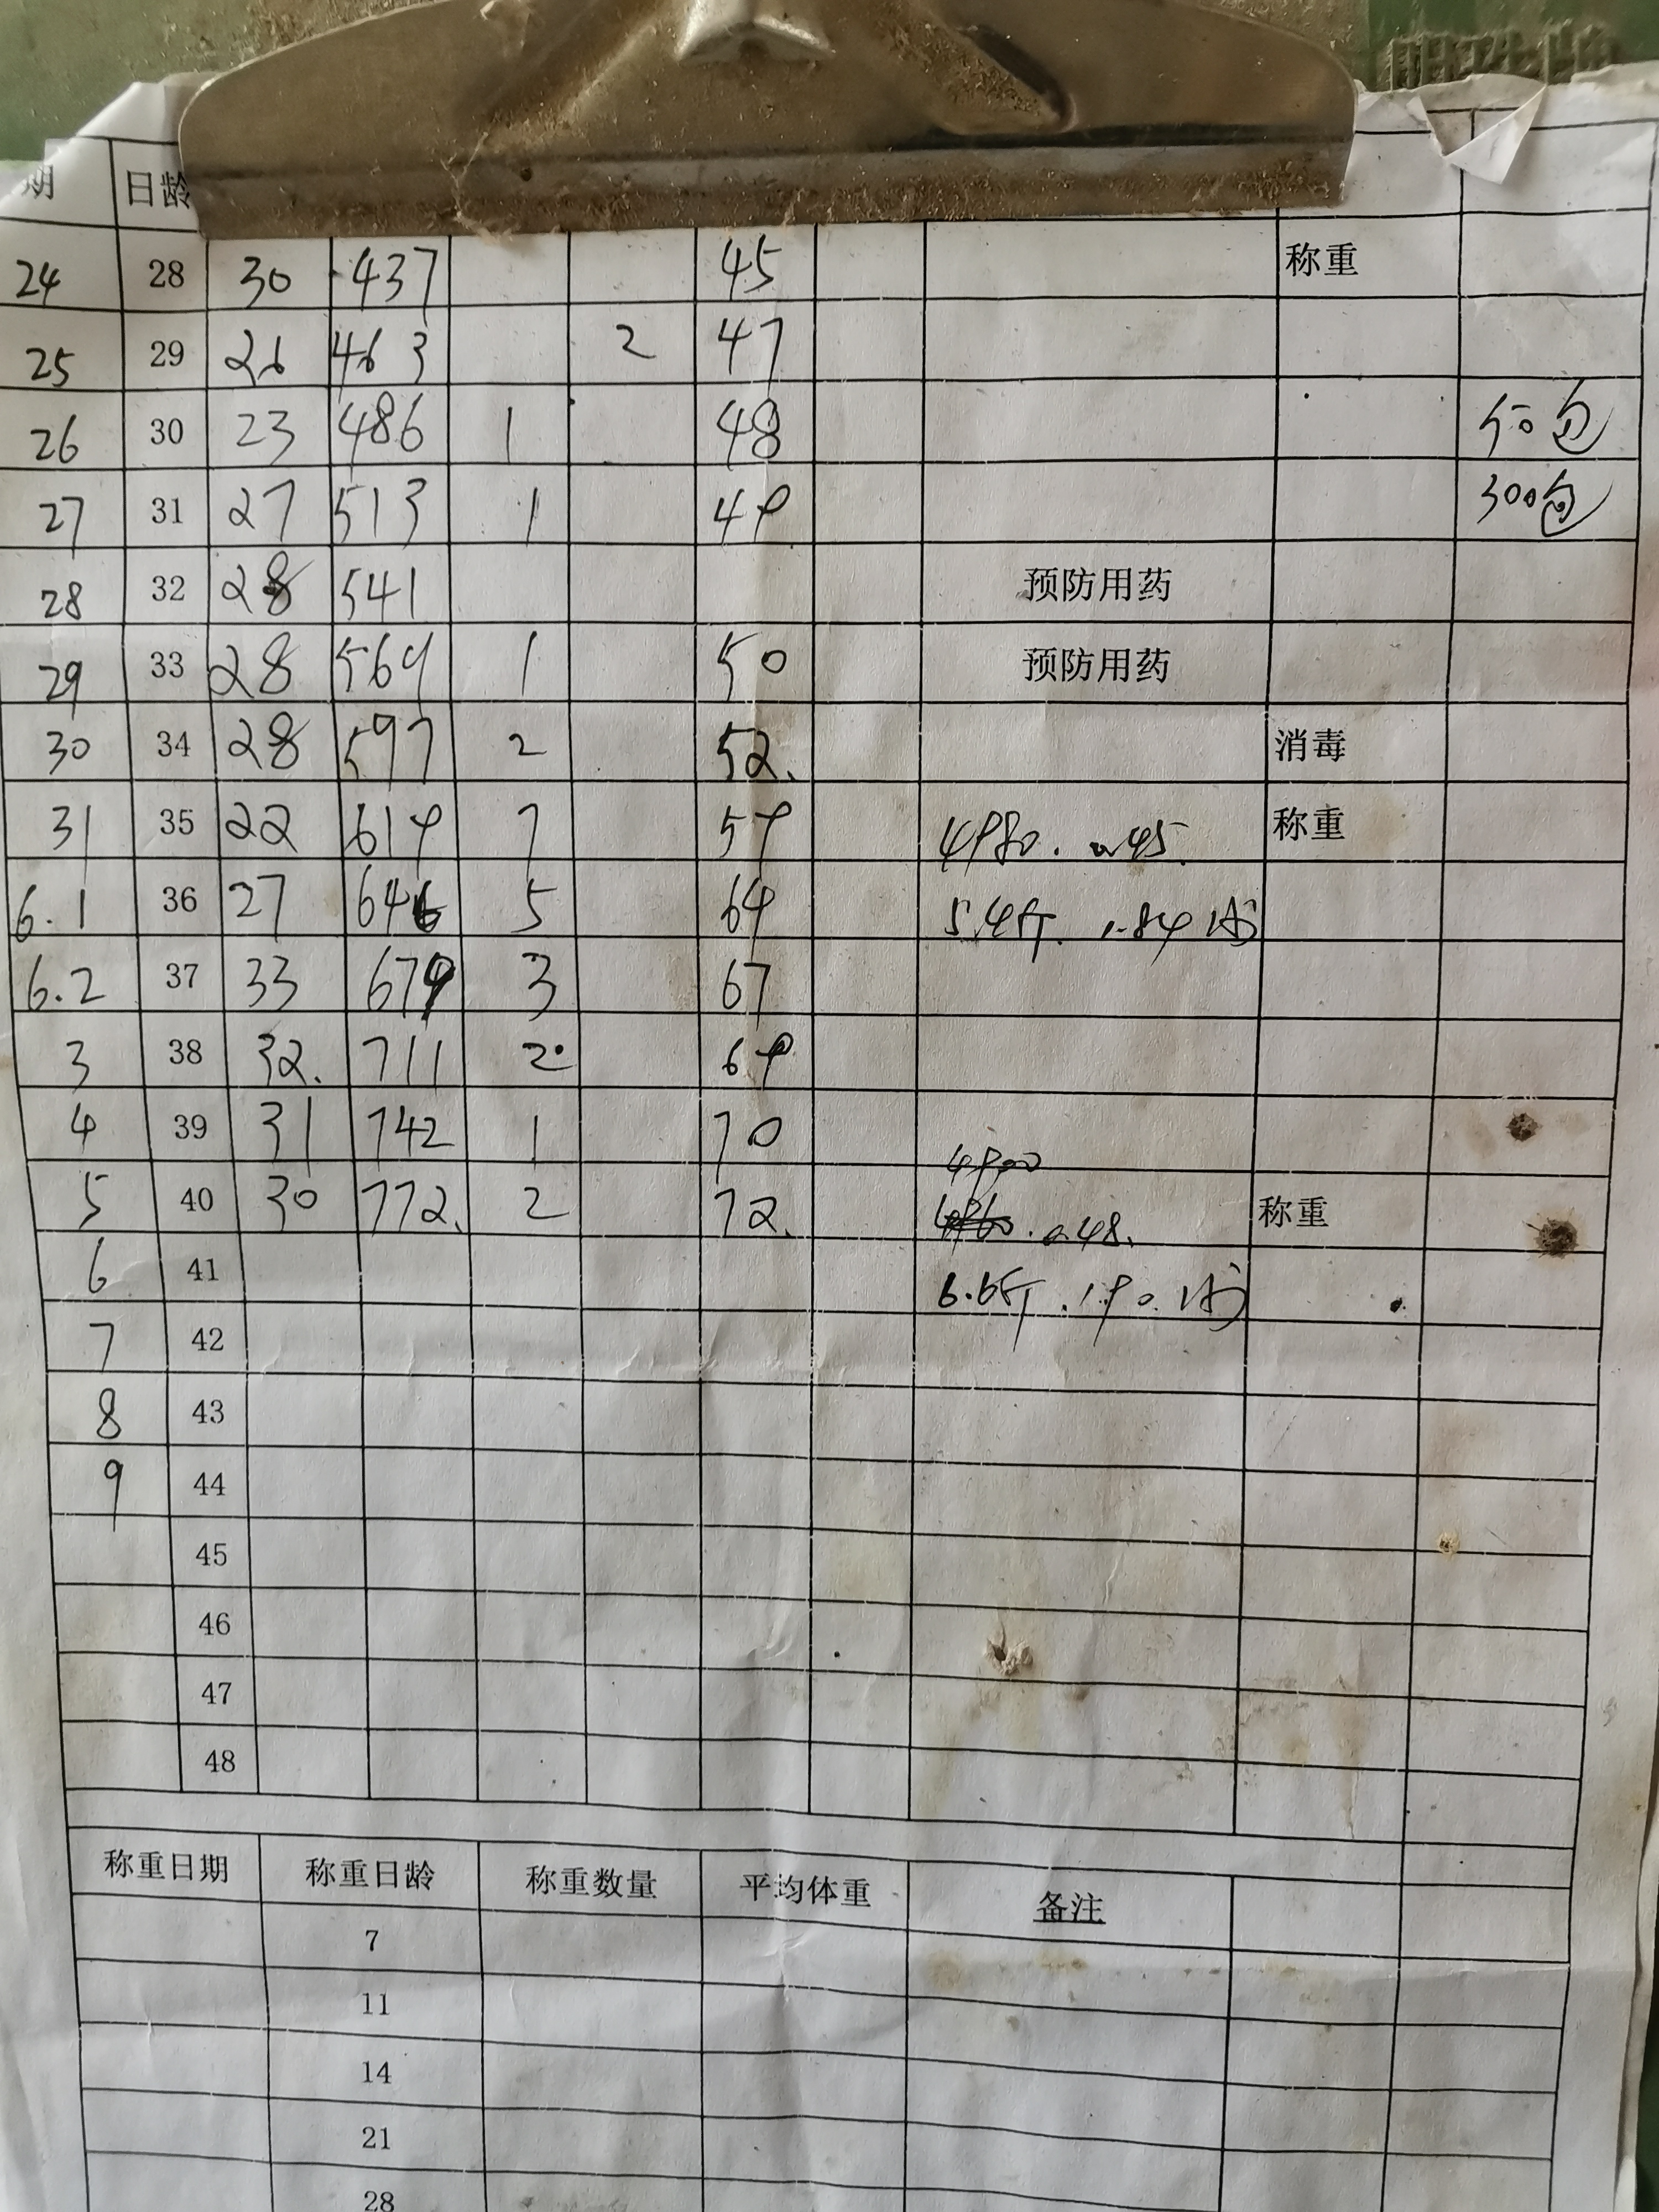 期 日龄
24 28 30 437 45 称重
25 29 26 463 2 47
26 30 23 486 1 48 50包
27 31 27 513 1 49 300包
28 32 28 541 预防用药
29 33 28 569 1 50 预防用药
30 34 28 597 2 52. 消毒
31 35 22 619 7 59 4980. 0.45. 称重
6.1 36 27 646 5 64 5.4斤. 1.84
6.2 37 33 679 3 67
3 38 32. 711 2 69
4 39 31 742 1 70
4900
5 40 30 772. 2 72. 0.48. 称重
6 41 6.6斤. 1.90.
7 42
8 43
9 44
45
46
47
48
称重日期 称重日龄 称重数量 平均体重 备注
7
11
14
21
28